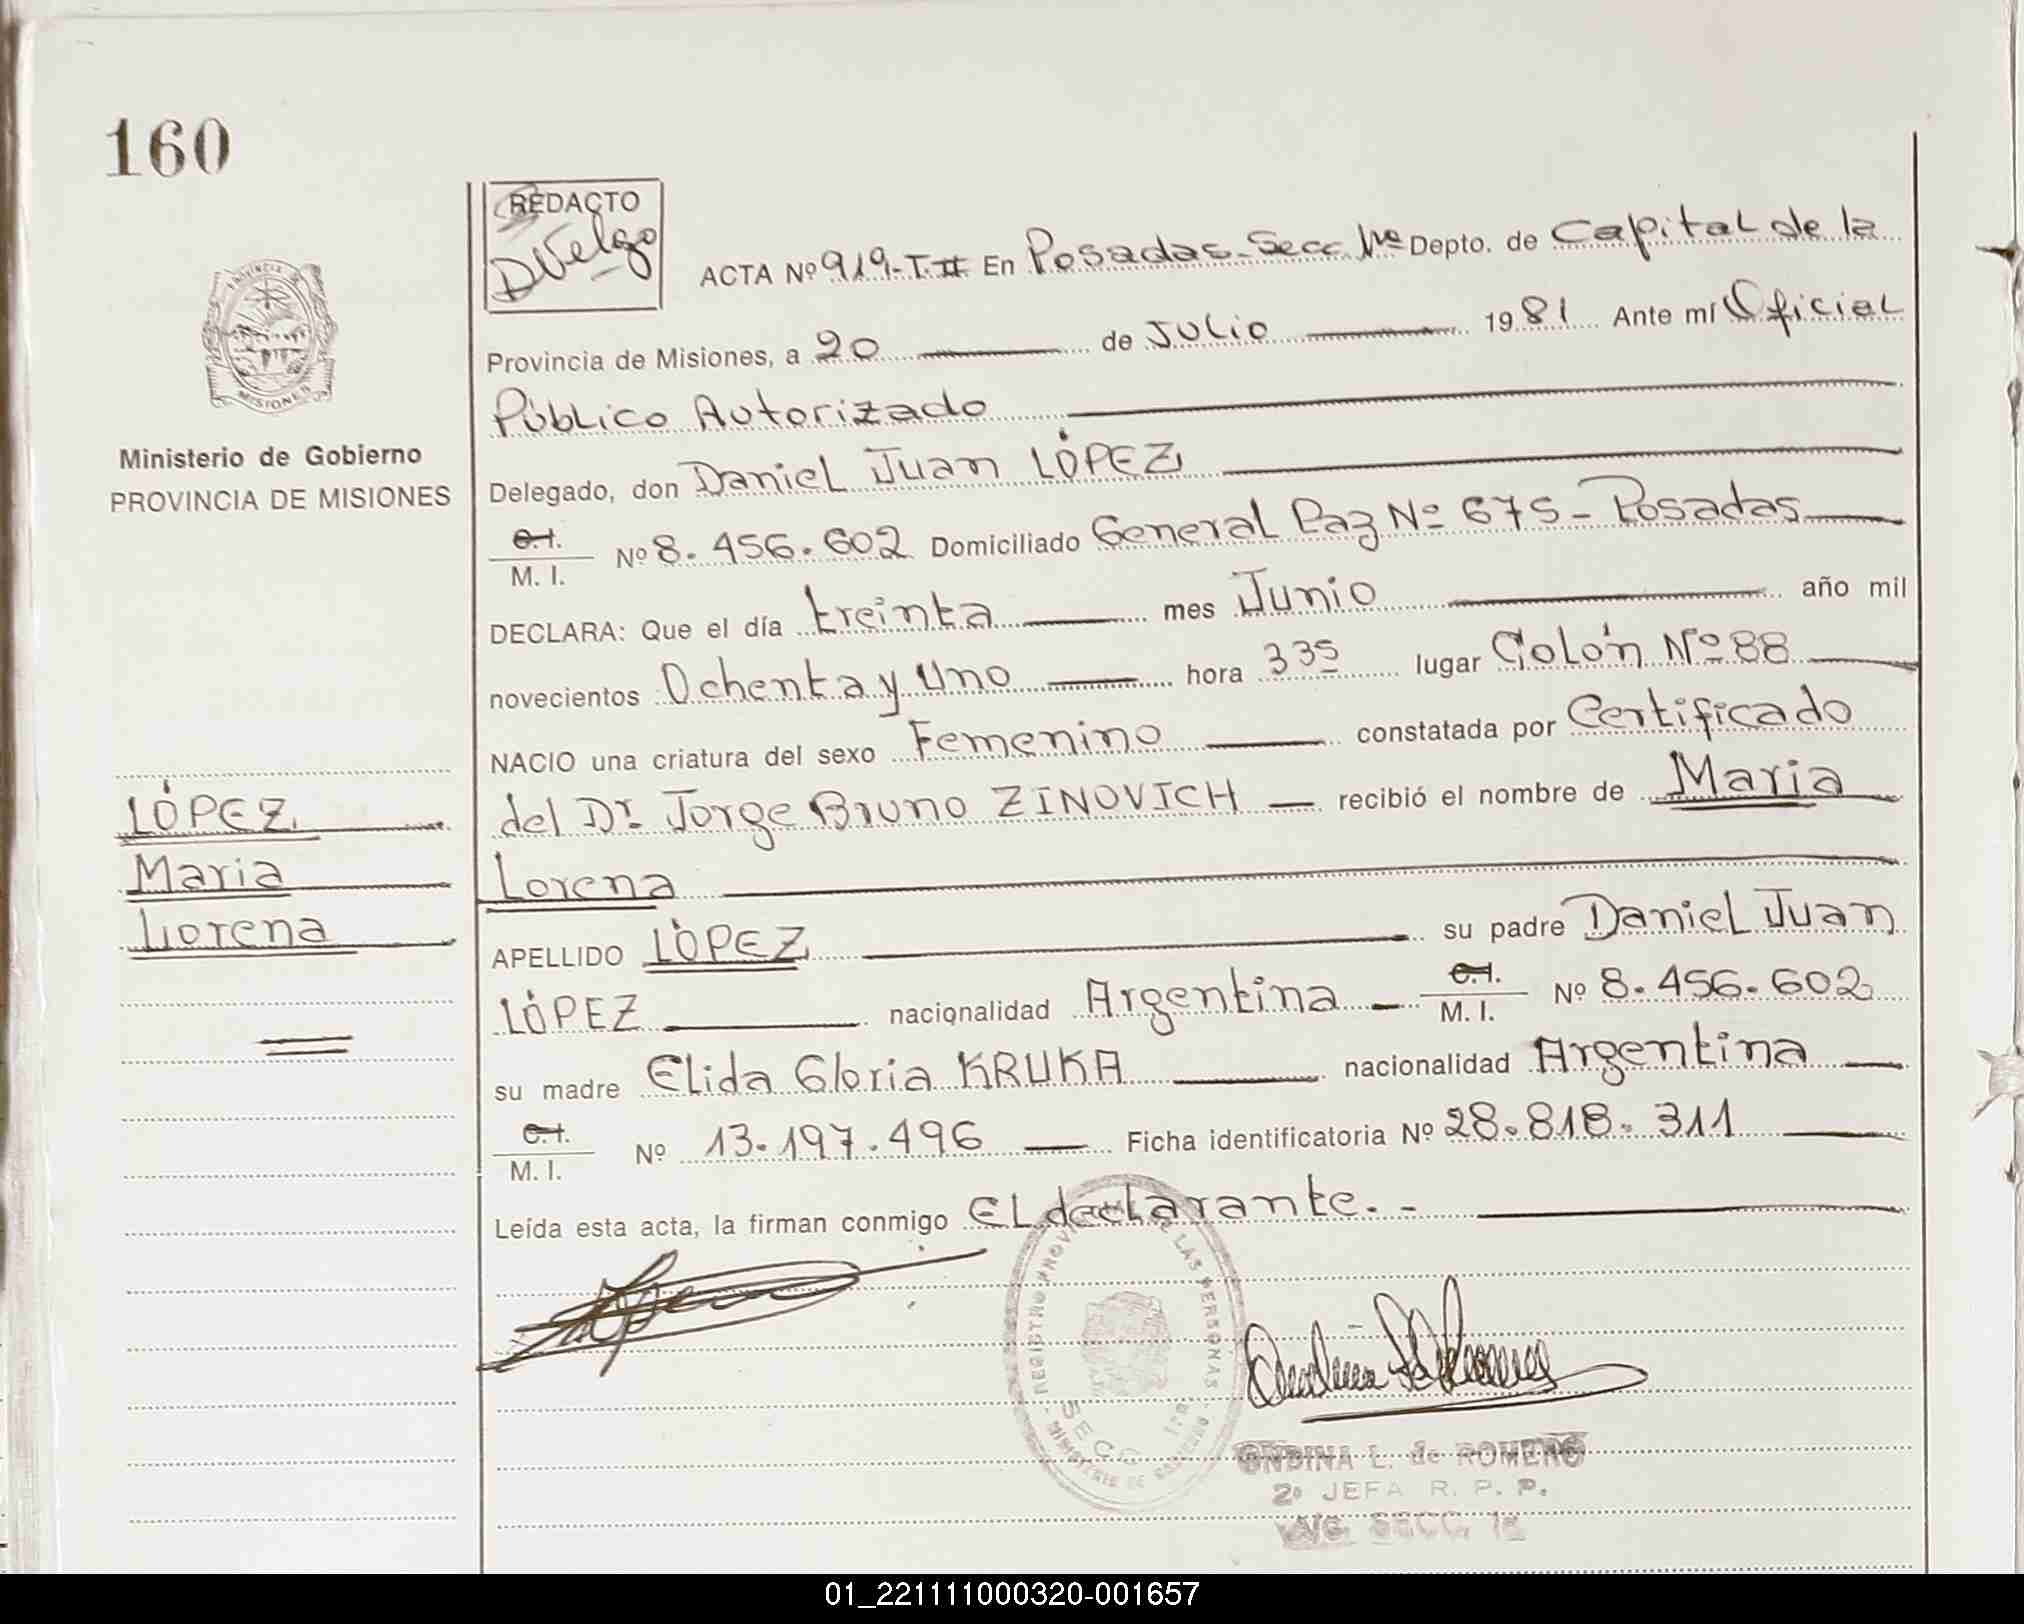 160
REDACTO
PROVINCIA DE
MISIONES
Ministerio de Gobierno
PROVINCIA DE MISIONES
LÓPEZ
Maria
Lorena
ACTA Nº 919-T.II En Posadas-Secc. 1ra Depto. de Capital de la
Provincia de Misiones, a 20 de Julio 1981 Ante mí Oficial
Público Autorizado
Delegado, don Daniel Juan LÓPEZ
C.I.
M. I. Nº 8.456.602 Domiciliado General Paz Nº 675-Posadas
DECLARA: Que el día treinta mes Junio año mil
novecientos Ochenta y Uno hora 3 35 lugar Colón Nº 88
NACIO una criatura del sexo Femenino constatada por Certificado
del Dr. Jorge Bruno ZINOVICH recibió el nombre de Maria
Lorena
APELLIDO LÓPEZ su padre Daniel Juan
LÓPEZ nacionalidad Argentina C.I. M. I. Nº 8.456.602
su madre Elida Gloria KRUKA nacionalidad Argentina
C.I.
M. I. Nº 13.197.496 Ficha identificatoria Nº 28.818.311
Leída esta acta, la firman conmigo El declarante.-
REGISTRO PROVINCIAL DE LAS PERSONAS
SECC. 1ra
MINISTERIO DE GOBIERNO
ONDINA L. de ROMERO
2º JEFA R. P. P.
SECC. 1a
01_221111000320-001657